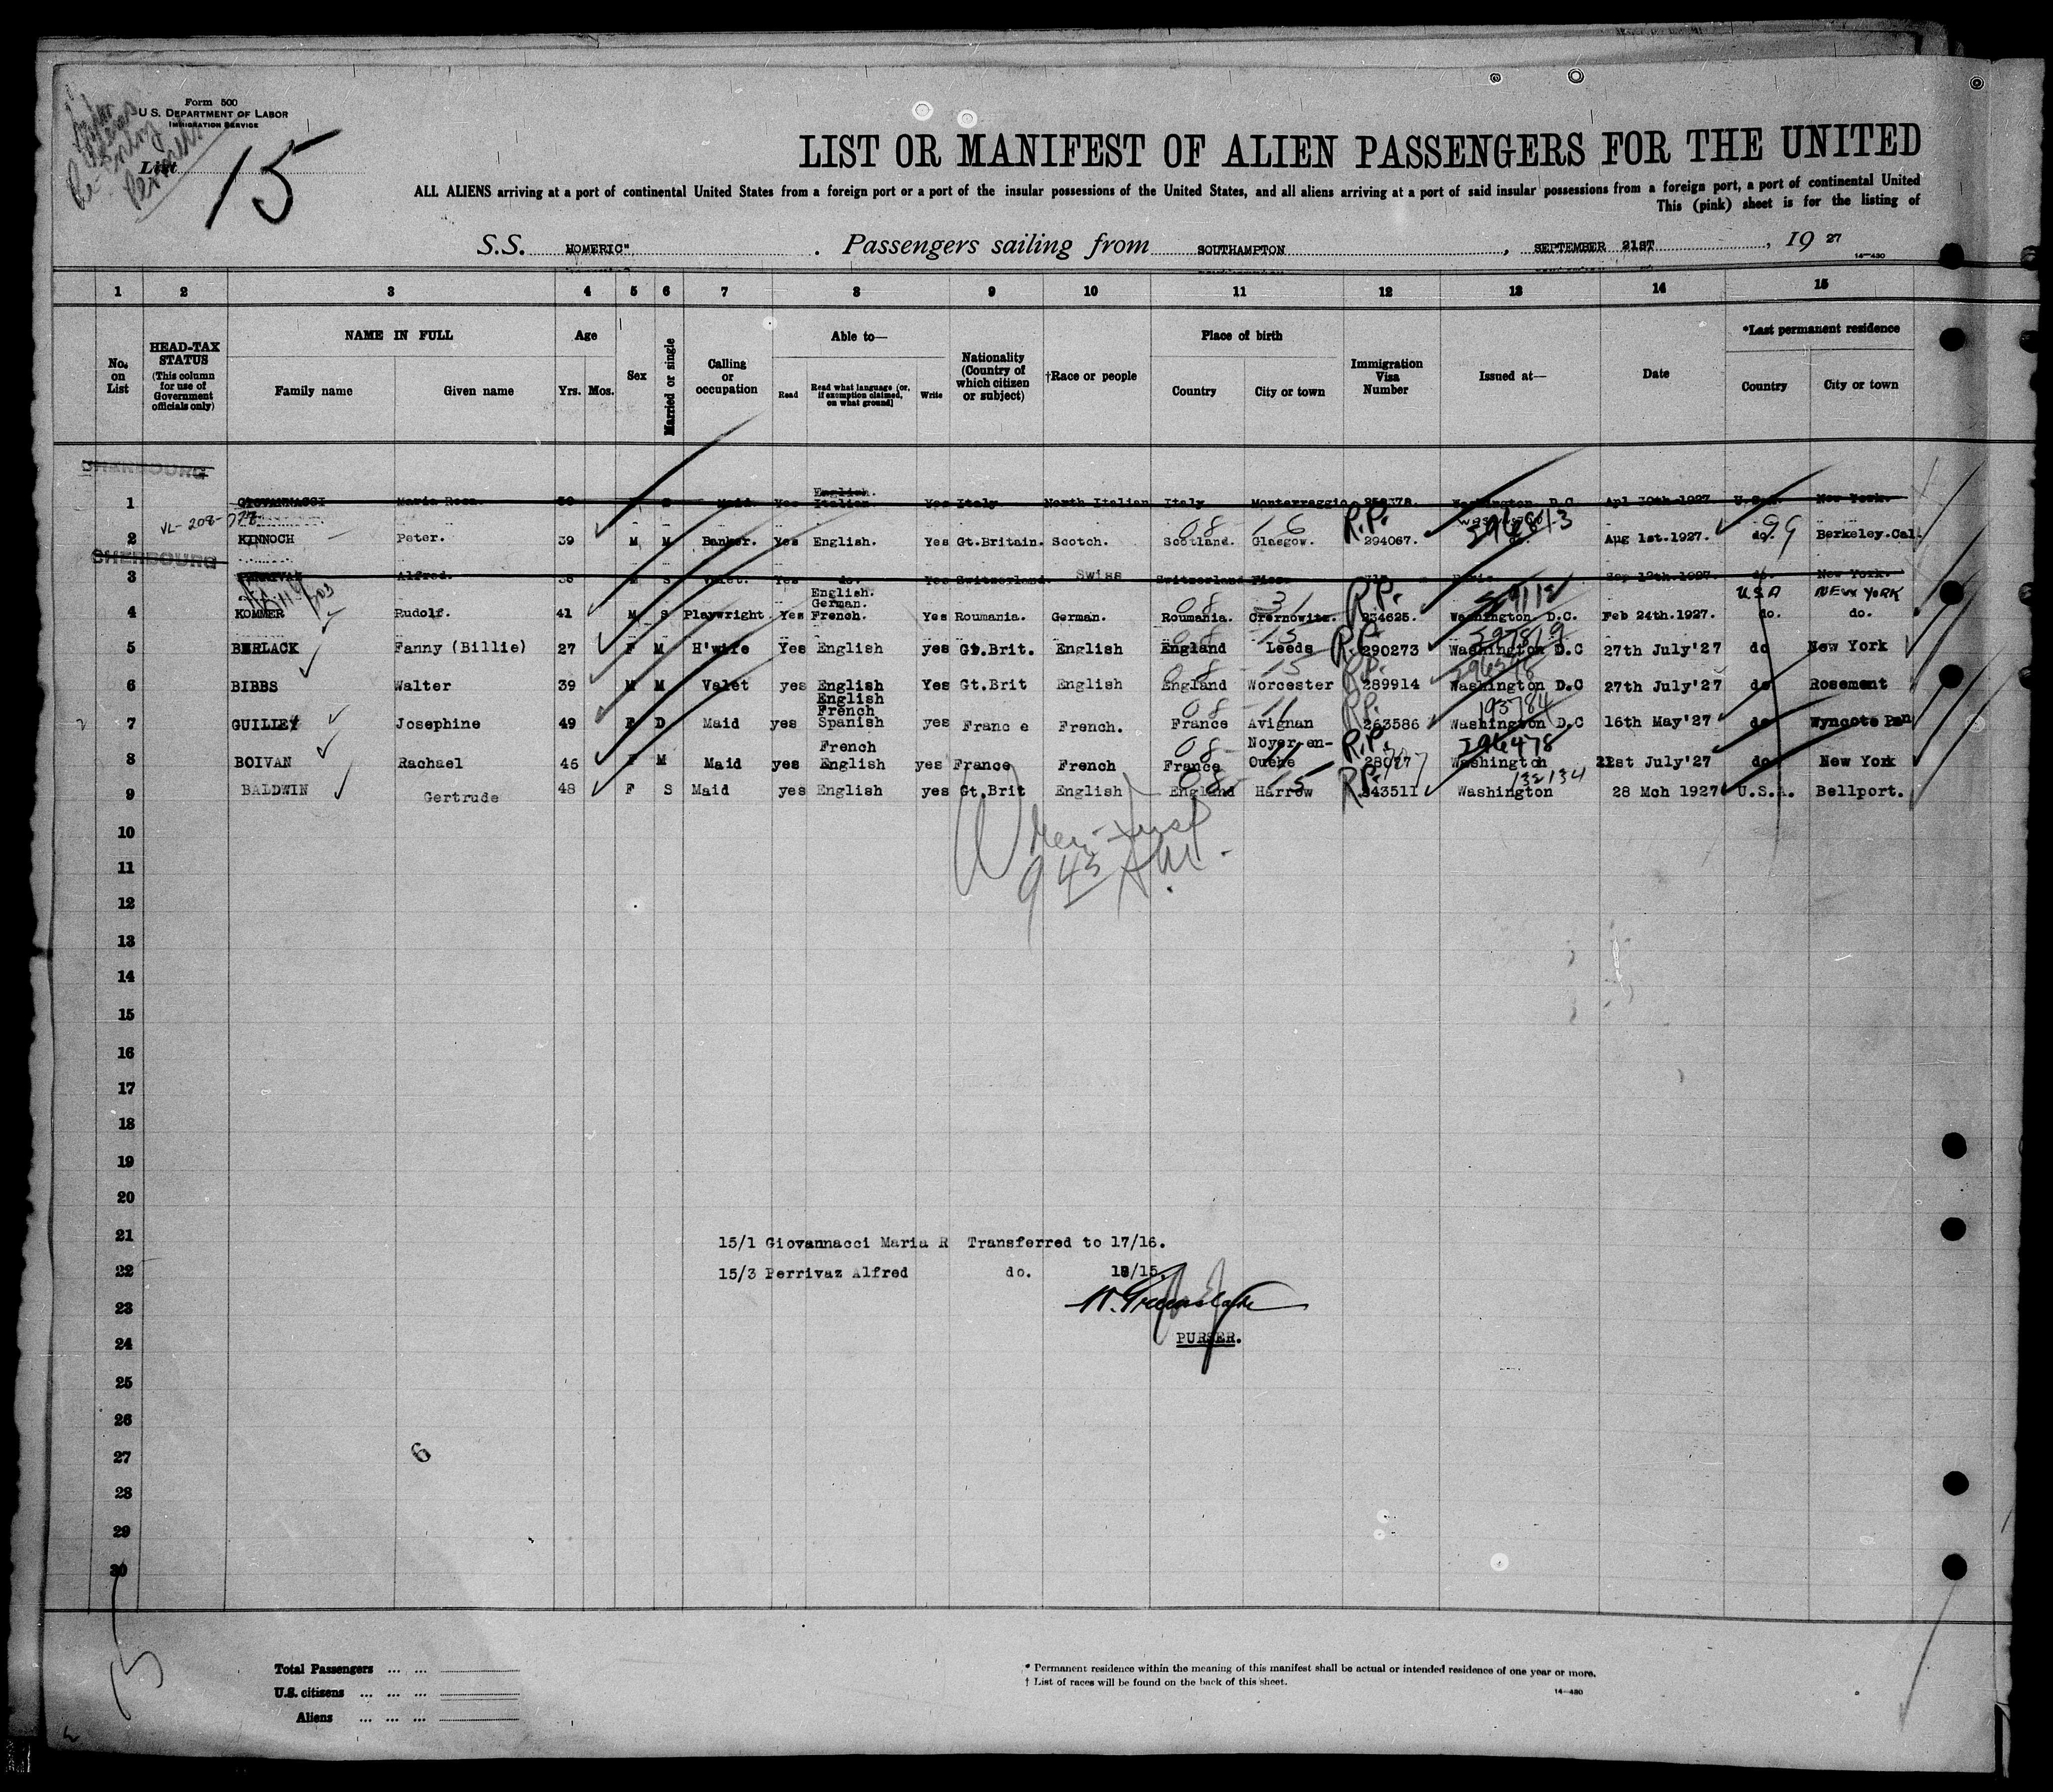 Form 500
U.S. DEPARTMENT OF LABOR
IMMIGRATION SERVICE
List 15
LIST OR MANIFEST OF ALIEN PASSENGERS FOR THE UNITED
ALL ALIENS arriving at a port of continental United States from a foreign port or a port of the insular possessions of the United States, and all aliens arriving at a port of said insular possessions from a foreign port, a port of continental United
This (pink) sheet is for the listing of
S.S. HOMERIC" . Passengers sailing from SOUTHAMPTON , SEPTEMBER 21ST , 19 27
14—430
1 2 3 4 5 6 7 8 9 10 11 12 13 14 15
No. on List
HEAD-TAX STATUS (This column for use of Government officials only)
NAME IN FULL
Family name Given name
Age
Yrs. Mos.
Sex
Married or single
Calling or occupation
Able to—
Read Read what language (or, if exemption claimed, on what ground) Write
Nationality (Country of which citizen or subject)
†Race or people
Place of birth
Country City or town
Immigration Visa Number
Issued at—
Date
*Last permanent residence
Country City or town
CHERBOURG
1 GIOVANNACCI Maria Rosa. Maid. Yes English. Italian. Yes Italy North Italian Italy Monterraggio Washington D.C Apl 30th.1927. U.S.A. New York.
VL-208-
2 KINNOCH Peter. 39 M M Banker. Yes English. Yes Gt.Britain. Scotch. Scotland. 08-16 Glasgow. R.P. 294067. 396843 do. Aug 1st.1927. do. 99 Berkeley.Cal.
CHERBOURG
3 Alfred. M S Valet. Yes do. Yes Switzerland. Swiss Switzerland Sep 12th.1927. do. New York.
4 KOMMER Rudolf. 41 M S Playwright. Yes English. German. French. Yes Roumania. German. 08 31 Roumania. Czernowitz. R.P. 234625. Washington. D.C. Feb 24th.1927. USA do. NEW YORK do.
5 BERLACK Fanny (Billie) 27 F M H'wife Yes English yes Gt.Brit. English 08 15 England Leeds R.P. 290273 397819 Washington D.C 27th July'27 do New York
6 BIBBS Walter 39 M M Valet yes English Yes Gt.Brit English 08-15 England Worcester R.P. 289914 Washington D.C 27th July'27 do Rosemont
7 GUILLEY Josephine 49 F D Maid yes English French Spanish yes Franc e French. 08-11 France Avignan R.P. 263586 193784 Washington D.C 16th May'27 do Wyncote Pen
8 BOIVAN Rachael 46 F M Maid yes French English yes France French 08-11 France Noyer-en-Ouche R.P. 296478 Washington 21st July'27 do New York
9 BALDWIN Gertrude 48 F S Maid yes English yes Gt.Brit English 08-15 England Harrow R.P. 243511 132134 Washington 28 Mch 1927 U.S.A. Bellport.
10
9 45 AM.
11
12
13
14
15
16
17
18
19
20
21 15/1 Giovannacci Maria R Transferred to 17/16.
22 15/3 Perrivaz Alfred do. 18/15.
23
24 PURSER.
25
26
27
6
28
29
30
15
Total Passengers ... ...
U.S. citizens ... ... ...
Aliens ... ... ...
* Permanent residence within the meaning of this manifest shall be actual or intended residence of one year or more.
† List of races will be found on the back of this sheet.
14—430